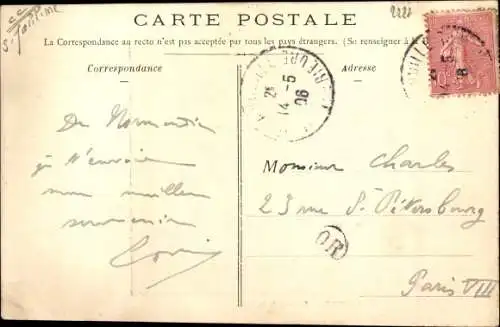 CARTE POSTALE
La Correspondance au recto n'est pas acceptée par tous les pays étrangers. (Se renseigner à la
Correspondance
Adresse
14 - 5
06
De Normandie
je t'envoie
mon meilleur
souvenir
Louis
Monsieur Charles
23 rue St Pétersbourg
OR
Paris VIII